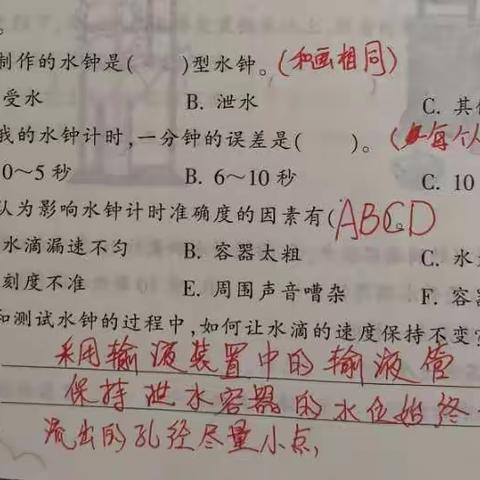 。
制作的水钟是(    )型水钟。(和画相同)
受水 B. 泄水 C. 其
我的水钟计时,一分钟的误差是(    )。(每个人
0～5 秒 B. 6～10 秒 C. 10
认为影响水钟计时准确度的因素有(ABCD
水滴漏速不匀 B. 容器太粗 C. 水
刻度不准 E. 周围声音嘈杂 F. 容
和测试水钟的过程中,如何让水滴的速度保持不变?
采用输液装置中的输液管
保持泄水容器的水位始终
流出的孔径尽量小点,